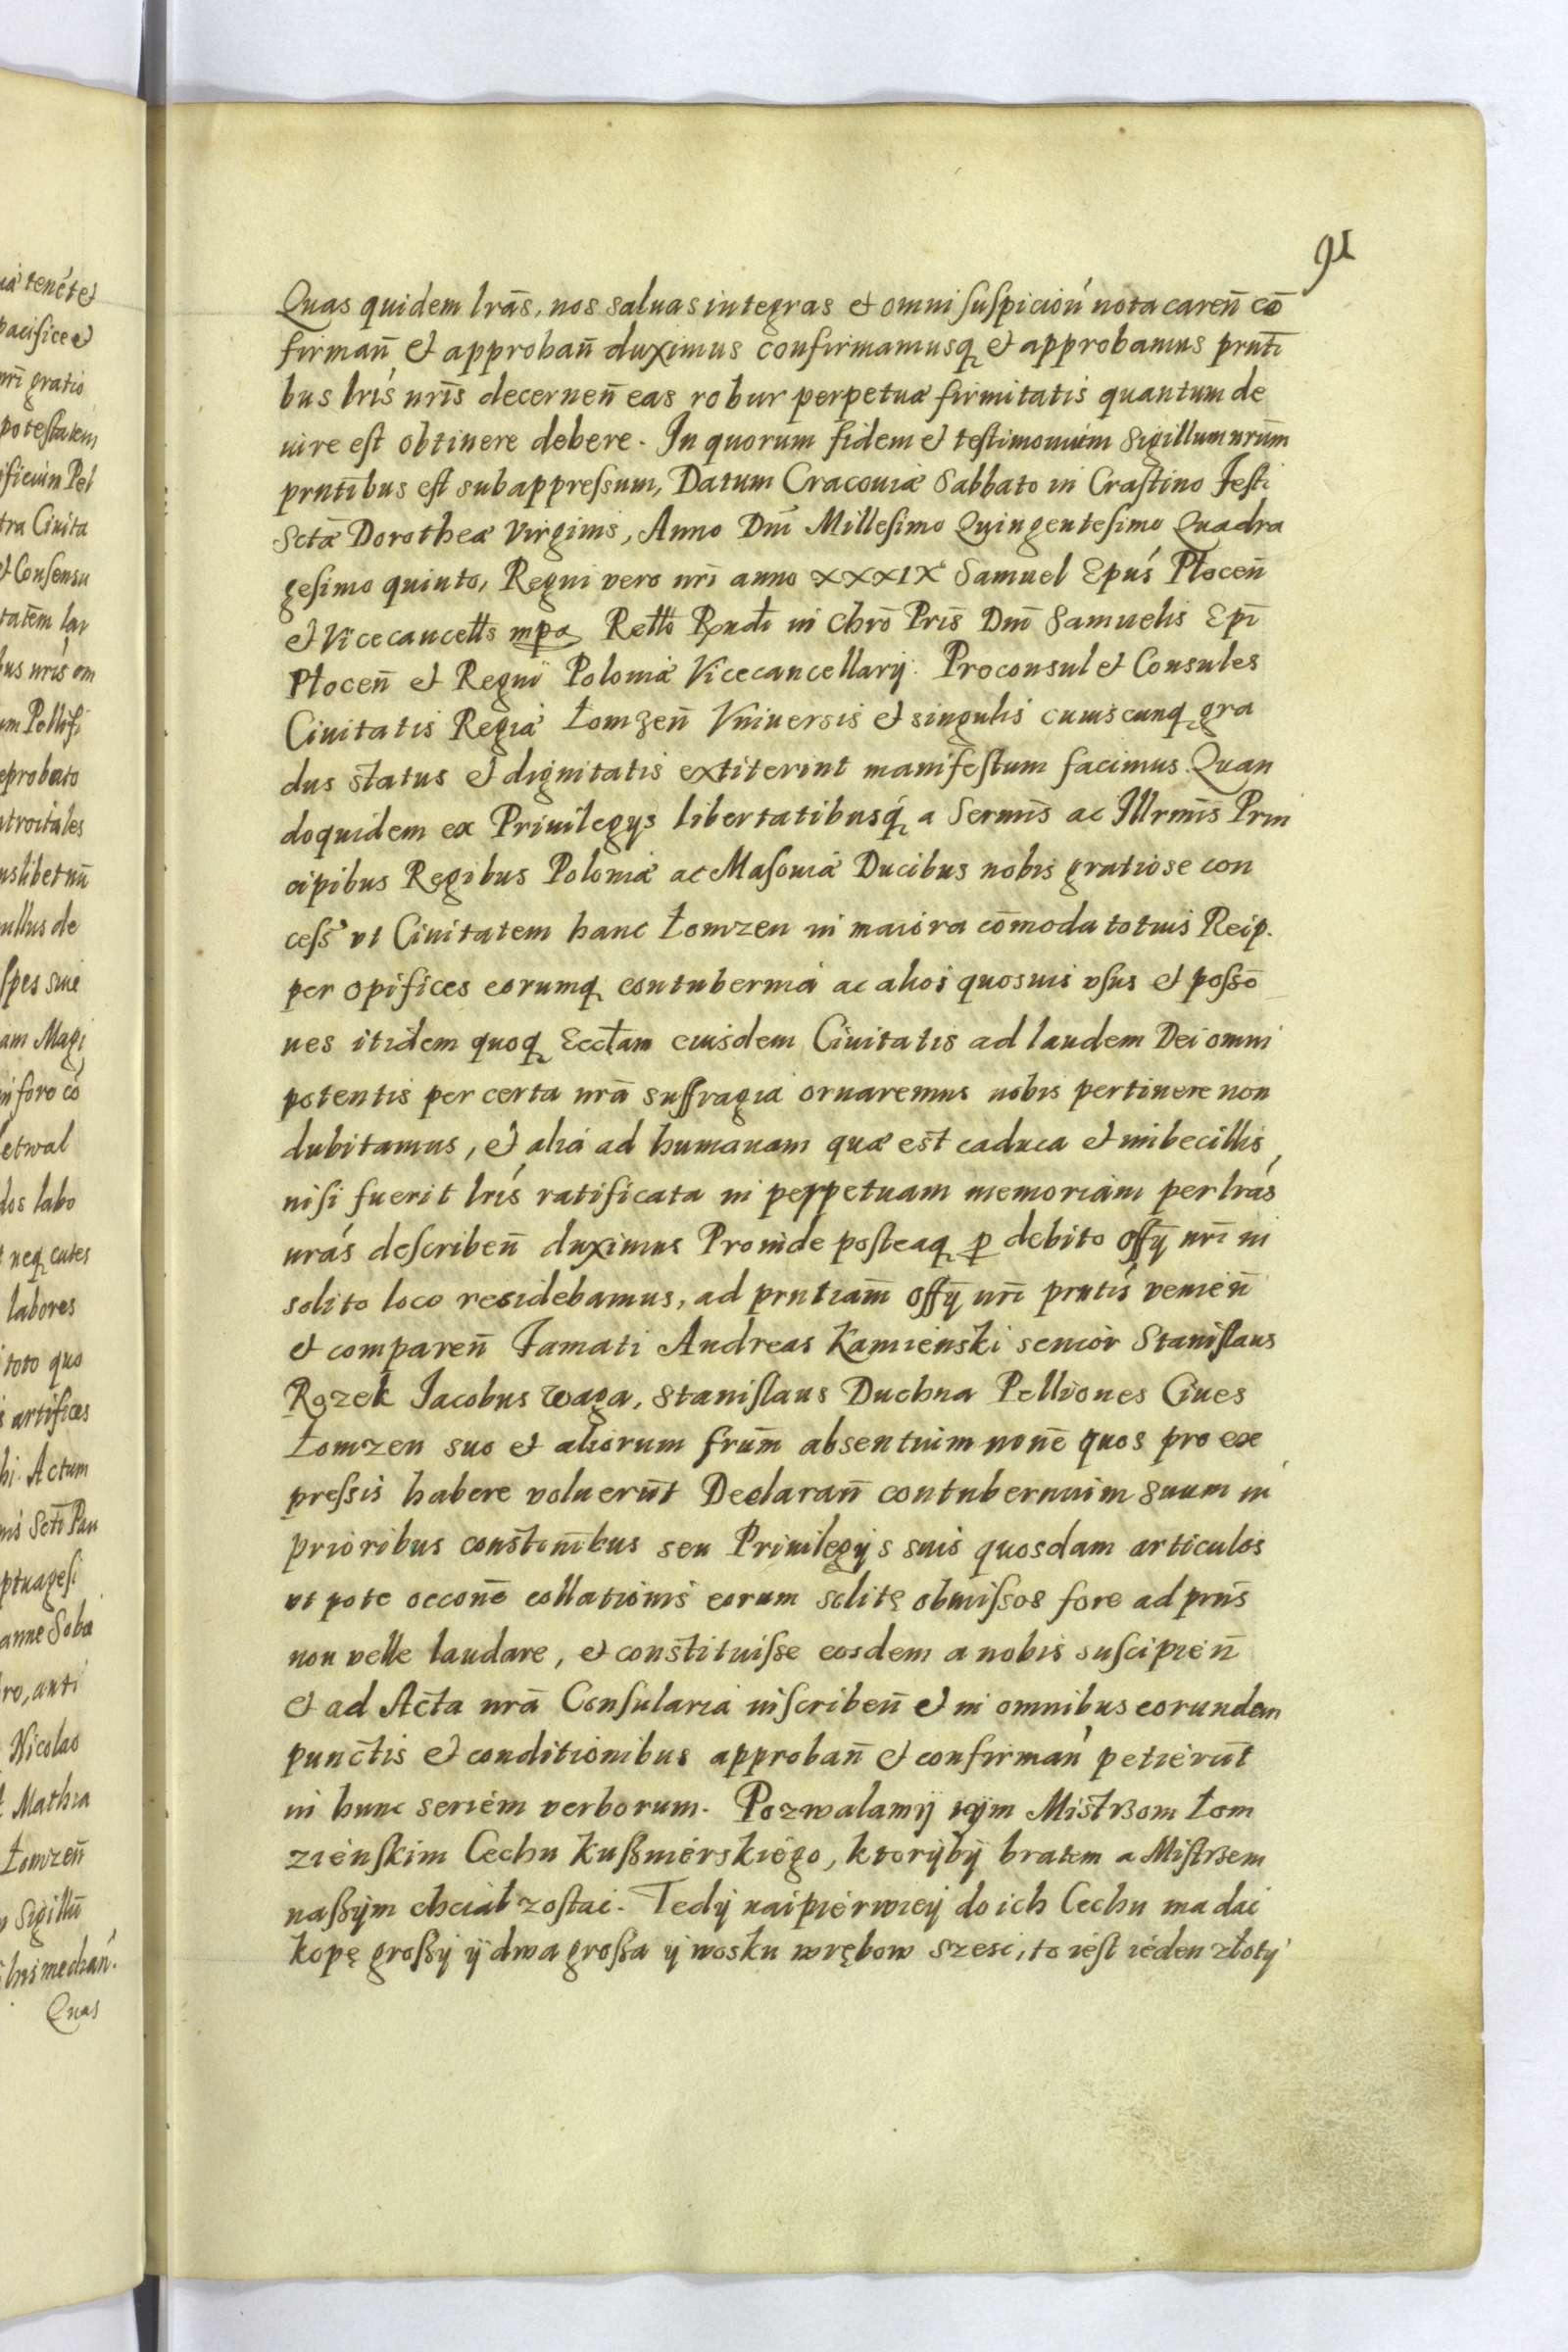 91
Quas quidem lrās, nos saluas integras et omni suspicioń nota careñ cō
firmañ et approbañ duximus confirmamusq et approbamus prntī
bus lrīs nrīs decerneñ eas robur perpetuæ firmitatis quantum de
iure est obtinere debere. In quorum fidem et testimonium Sigillum nrūm
prntībus est subappressum, Datum Cracouiæ Sabbato in Crastino Festi
Sctæ Dorotheæ Virginis, Anno Dnī Millesimo Quingentesimo Quadra
gesimo quinto, Regni vero nrī anno XXXIX Samuel Epūs Płoceñ
et Vicecancells mpa Rello Rndi in Chrō Prīs Dnī Samuelis Epī
Płoceñ et Regni Poloniæ Vicecancellarÿ. Proconsul et Consules
Ciuitatis Regiæ Łomzeñ Vniuersis et singulis cuiuscunq gra
dus status et dignitatis extiterint manifestum facimus. Quan
doquidem ex Priuilegys libertatibusq a Sermīs ac Illrmīs Prin
cipibus Regibus Poloniæ ac Masouiæ Ducibus nobis gratiose con
cess vt Ciuitatem hanc Łomzen in maiora cōmoda totius Reip.
per opifices eorumq contubernia ac alios quosuis vsus et possō
nes itidem quoq Eccłam eiusdem Ciuitatis ad laudem Dei omni
potentis per certa nrā suffragia ornaremus nobis pertinere non
dubitamus, et alia ad humanam quæ est caduca et imbecillis,
nisi fuerit lrīs ratificata in perpetuam memoriam per lrās
nrās describeñ duximus Proinde posteaq p debito offÿ nrī in
solito loco residebamus, ad prntiam̄ offÿ nrī prntīs venieñ
et compareñ Famati Andreas Kamienski senior Stanislaus
Rozek Jacobus Waga, Stanislaus Duchna Pelliones Ciues
Łomzen suo et aliorum frūm absentium nonē quos pro ex
pressis habere voluerūt Declarañ contubernium suum in
prioribus constonībus seu Priuilegÿs suis quosdam articulos
vt pote occonē collationis eorum solitę obmissos fore ad prns
non velle laudare, et constituisse eosdem a nobis suscipień
et ad Acta nrā Consularia inscribeñ et in omnibus eorundem
punctis et conditionibus approbañ et confirmań petierūt
in hunc seriem verborum. Pozwalamÿ tÿm Mistrzom Łom
zienskim Cechu Kußnierskiego, ktorÿbÿ bratem a Mistrzem
naßÿm chciał zostac. Tedÿ naipierwieÿ do ich Cechu ma dac
kopę großÿ ÿ dwa großa ÿ wosku wrębow szesc, to iest ieden złotÿ